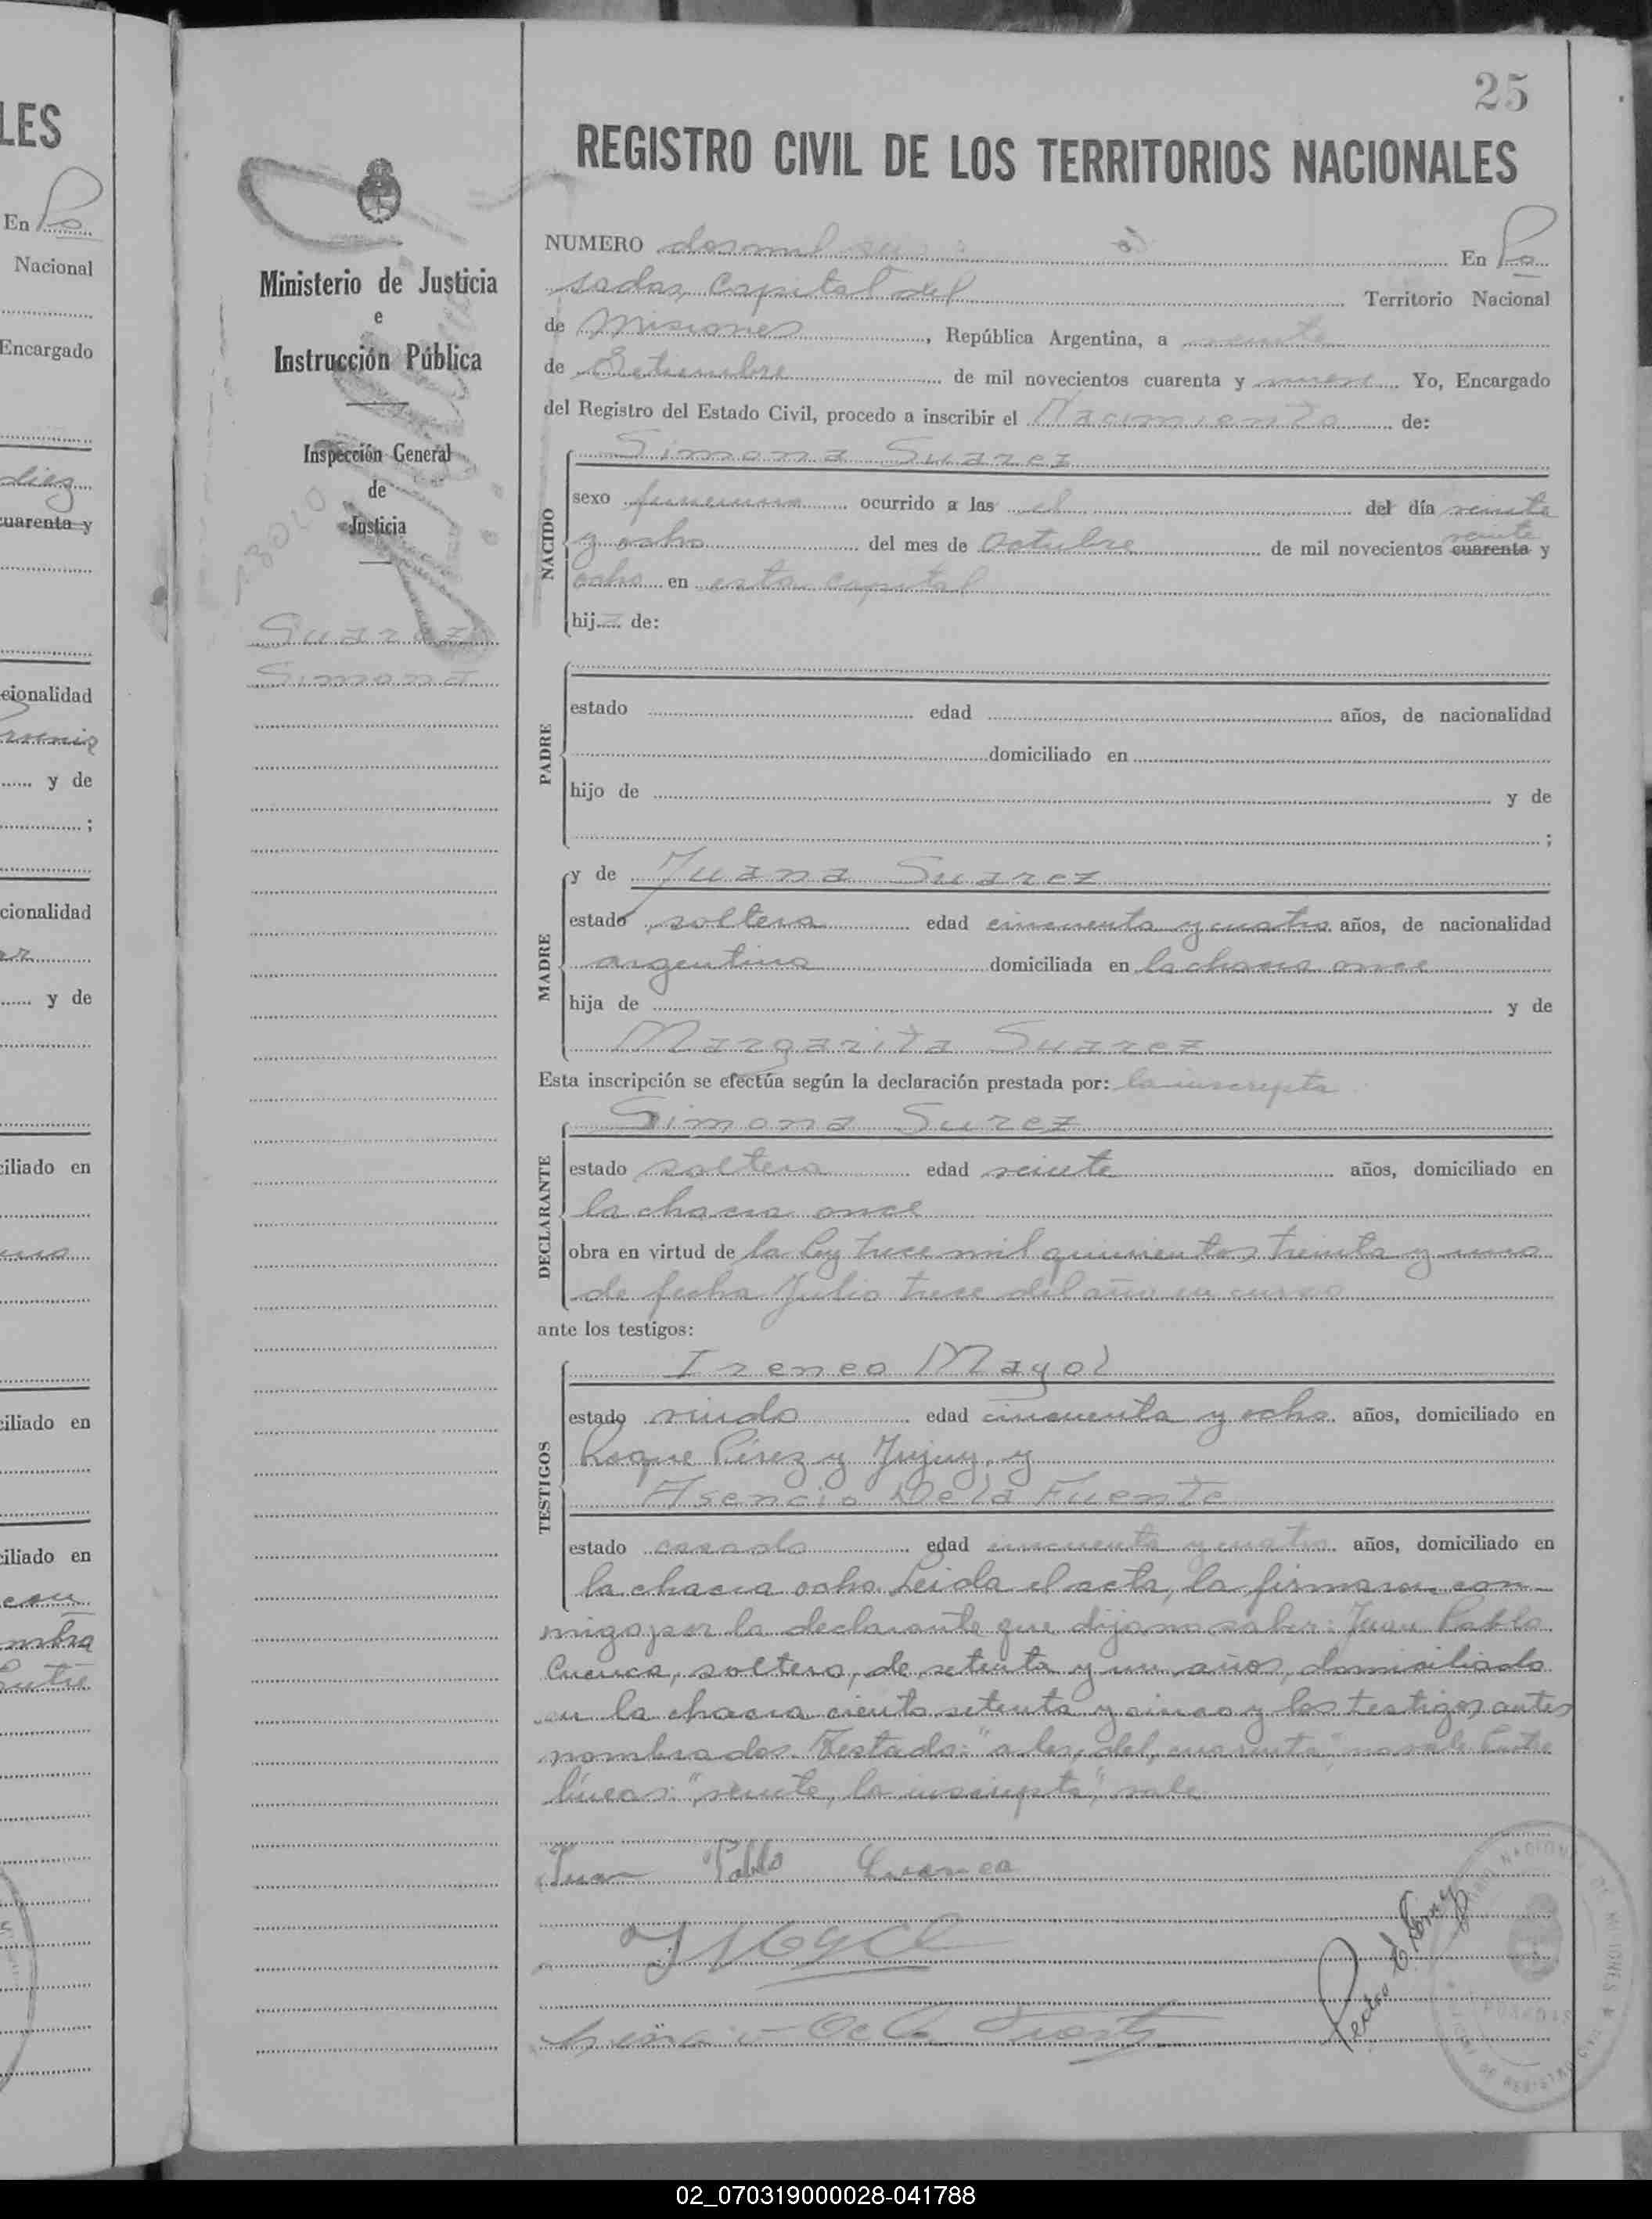 25
REGISTRO CIVIL DE LOS TERRITORIOS NACIONALES
NUMERO dosmil En Po
sadas, Capital del Territorio Nacional
de Misiones, República Argentina, a veinte
de Setiembre de mil novecientos cuarenta y nueve Yo, Encargado
del Registro del Estado Civil, procedo a inscribir el Nacimiento de:
Simona Suarez
NACIDO
sexo femenino ocurrido a las el del día veinte
y ocho del mes de Octubre de mil novecientos cuarenta veinte y
ocho en esta capital
hija de:
PADRE
estado edad años, de nacionalidad
domiciliado en
hijo de y de
;
MADRE
y de Juana Suarez
estado soltera edad cincuenta y cuatro años, de nacionalidad
argentina domiciliada en la chacra once
hija de y de
Margarita Suarez
Esta inscripción se efectúa según la declaración prestada por: la inscripta
Simona Surez
DECLARANTE
estado soltera edad veinte años, domiciliado en
la chacra once
obra en virtud de la ley trece mil quinientos treinta y uno
de fecha Julio trece del año en curso
ante los testigos:
TESTIGOS
Ireneo Mayol
estado viudo edad cincuenta y ocho años, domiciliado en
Roque Pérez y Jujuy, y
Asencio De la Fuente
estado casado edad cincuenta y cuatro años, domiciliado en
la chacra ocho. Leida el acta, la firmaron con-
migo, por la declarante que dijo no saber: Juan Pablo
Cuenca, soltero, de setenta y un años, domiciliado
en la chacra ciento setenta y cinco y los testigos antes
nombrados. Testado: "a las, del, cuarenta," no vale. Entre
líneas: "veinte, la inscripta," vale
Juan Pablo Cuenca
Ministerio de Justicia
e
Instrucción Pública
Inspección General
de
Justicia
Suarez
Simona
LES
En Po
Nacional
Encargado
diez
cuarenta y
cionalidad
y de
;
cionalidad
y de
ciliado en
ciliado en
ciliado en
02_070319000028-041788